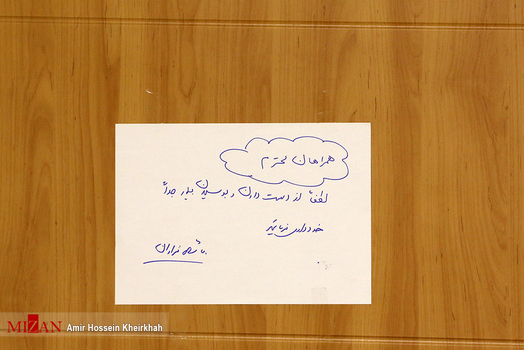 همراهان محترم
لطفاً از دست دادن و بوسیدن بیمار جداً
خودداری فرمائید
با تشکر فراوان
MIZAN Amir Hossein Kheirkhah